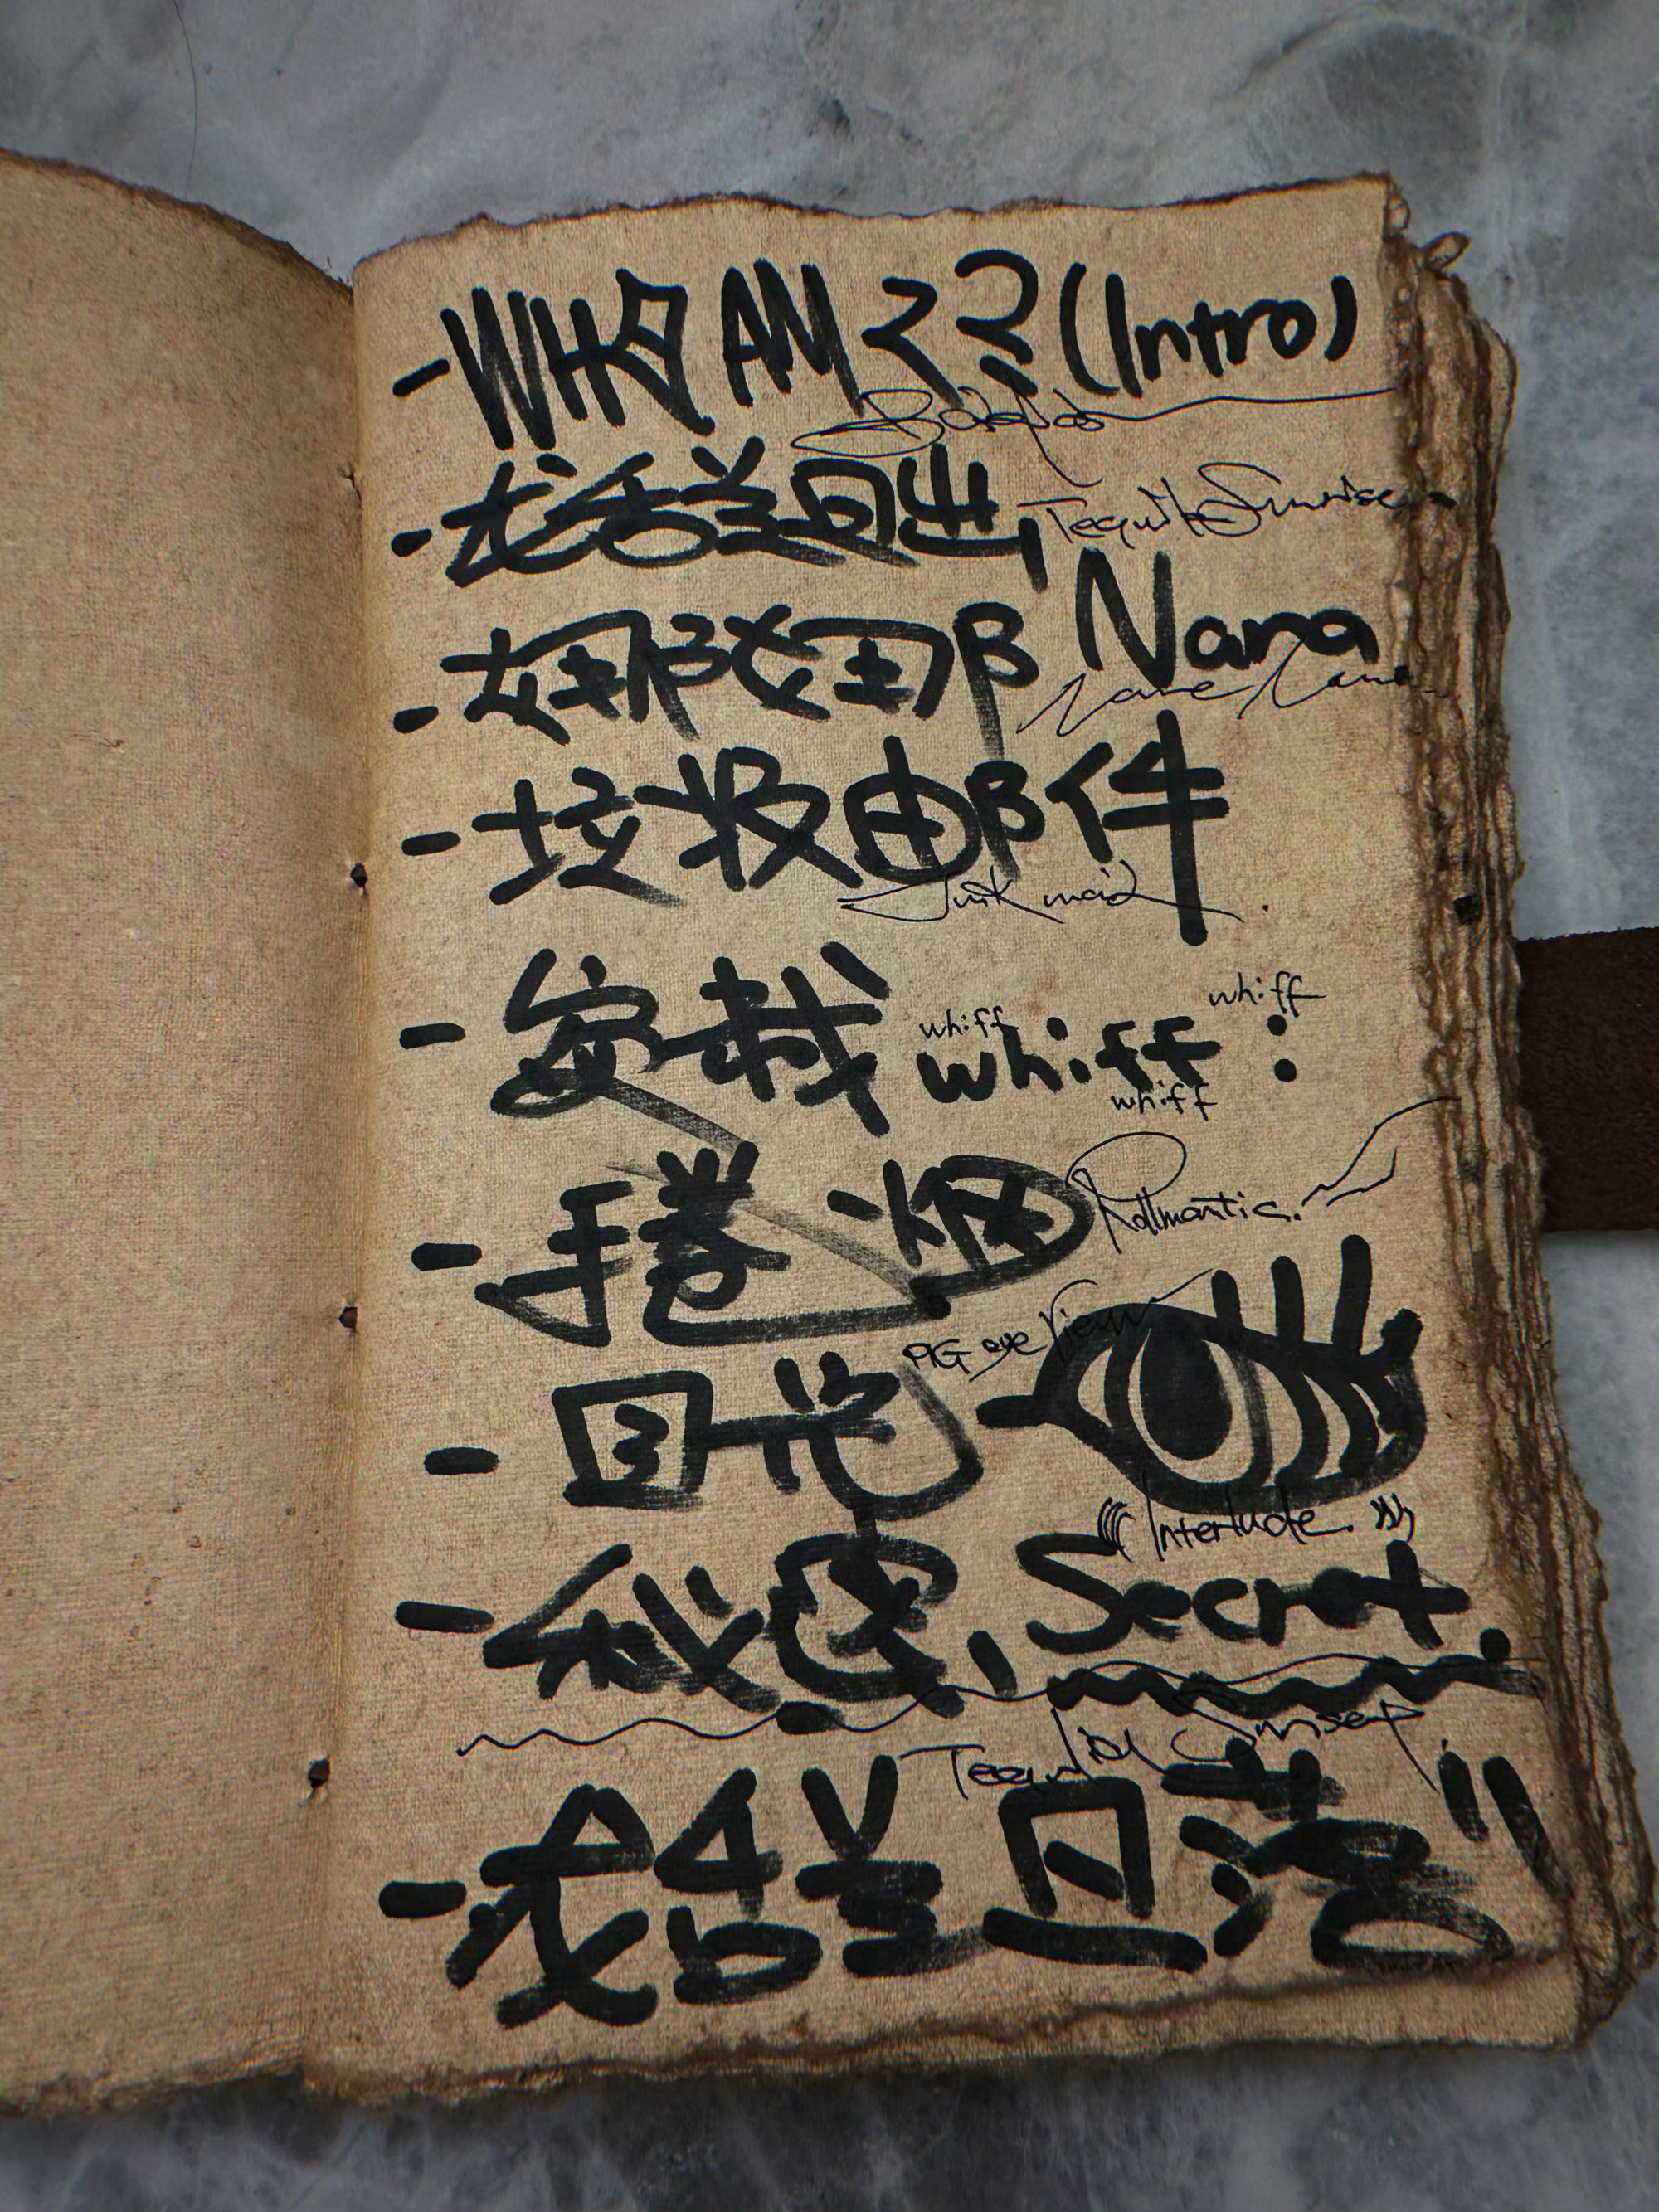 - WHO AM 孓孓 (Intro)
- 龙舌兰日出, Tequila Sunrise
- 娜娜 Nana
Nana Nana
- 垃圾邮件
Junk mail
- whiff
whiff
whiff
whiff
- 手卷烟 Rollmantic.
PIG eye View
Interlude.
- 秘密, Secret.
Tequila Sunset
- 龙舌兰日落"